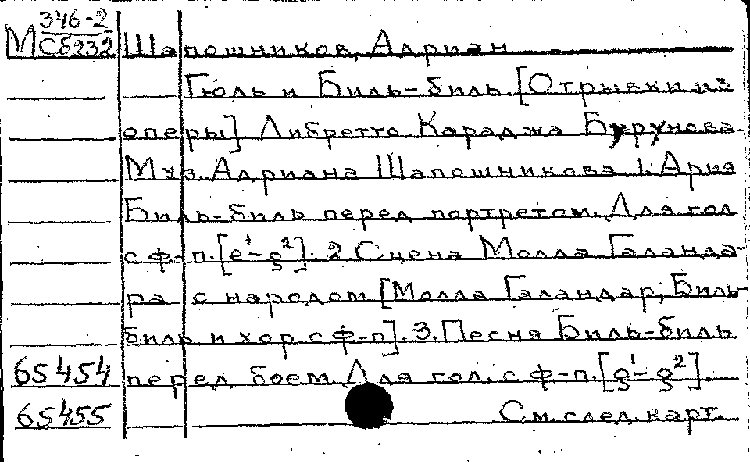 346-2
М Сб232 Шапошников, Адриан
Гюль и Биль-биль [Отрывки из
оперы] Либретто Караджа Бурунова
Муз. Адриана Шапошникова 1. Ария
Биль-биль перед портретом. Для гол
с ф-п. [e¹-g²]. 2 Сцена Молла Галанда-
ра с народом [Молла Галандар, Биль-
биль и хор с ф-п]. 3. Песня Биль-биль
65454 перед боем Для гол. с ф-п. [g¹-g²].
65455 См. след. карт.